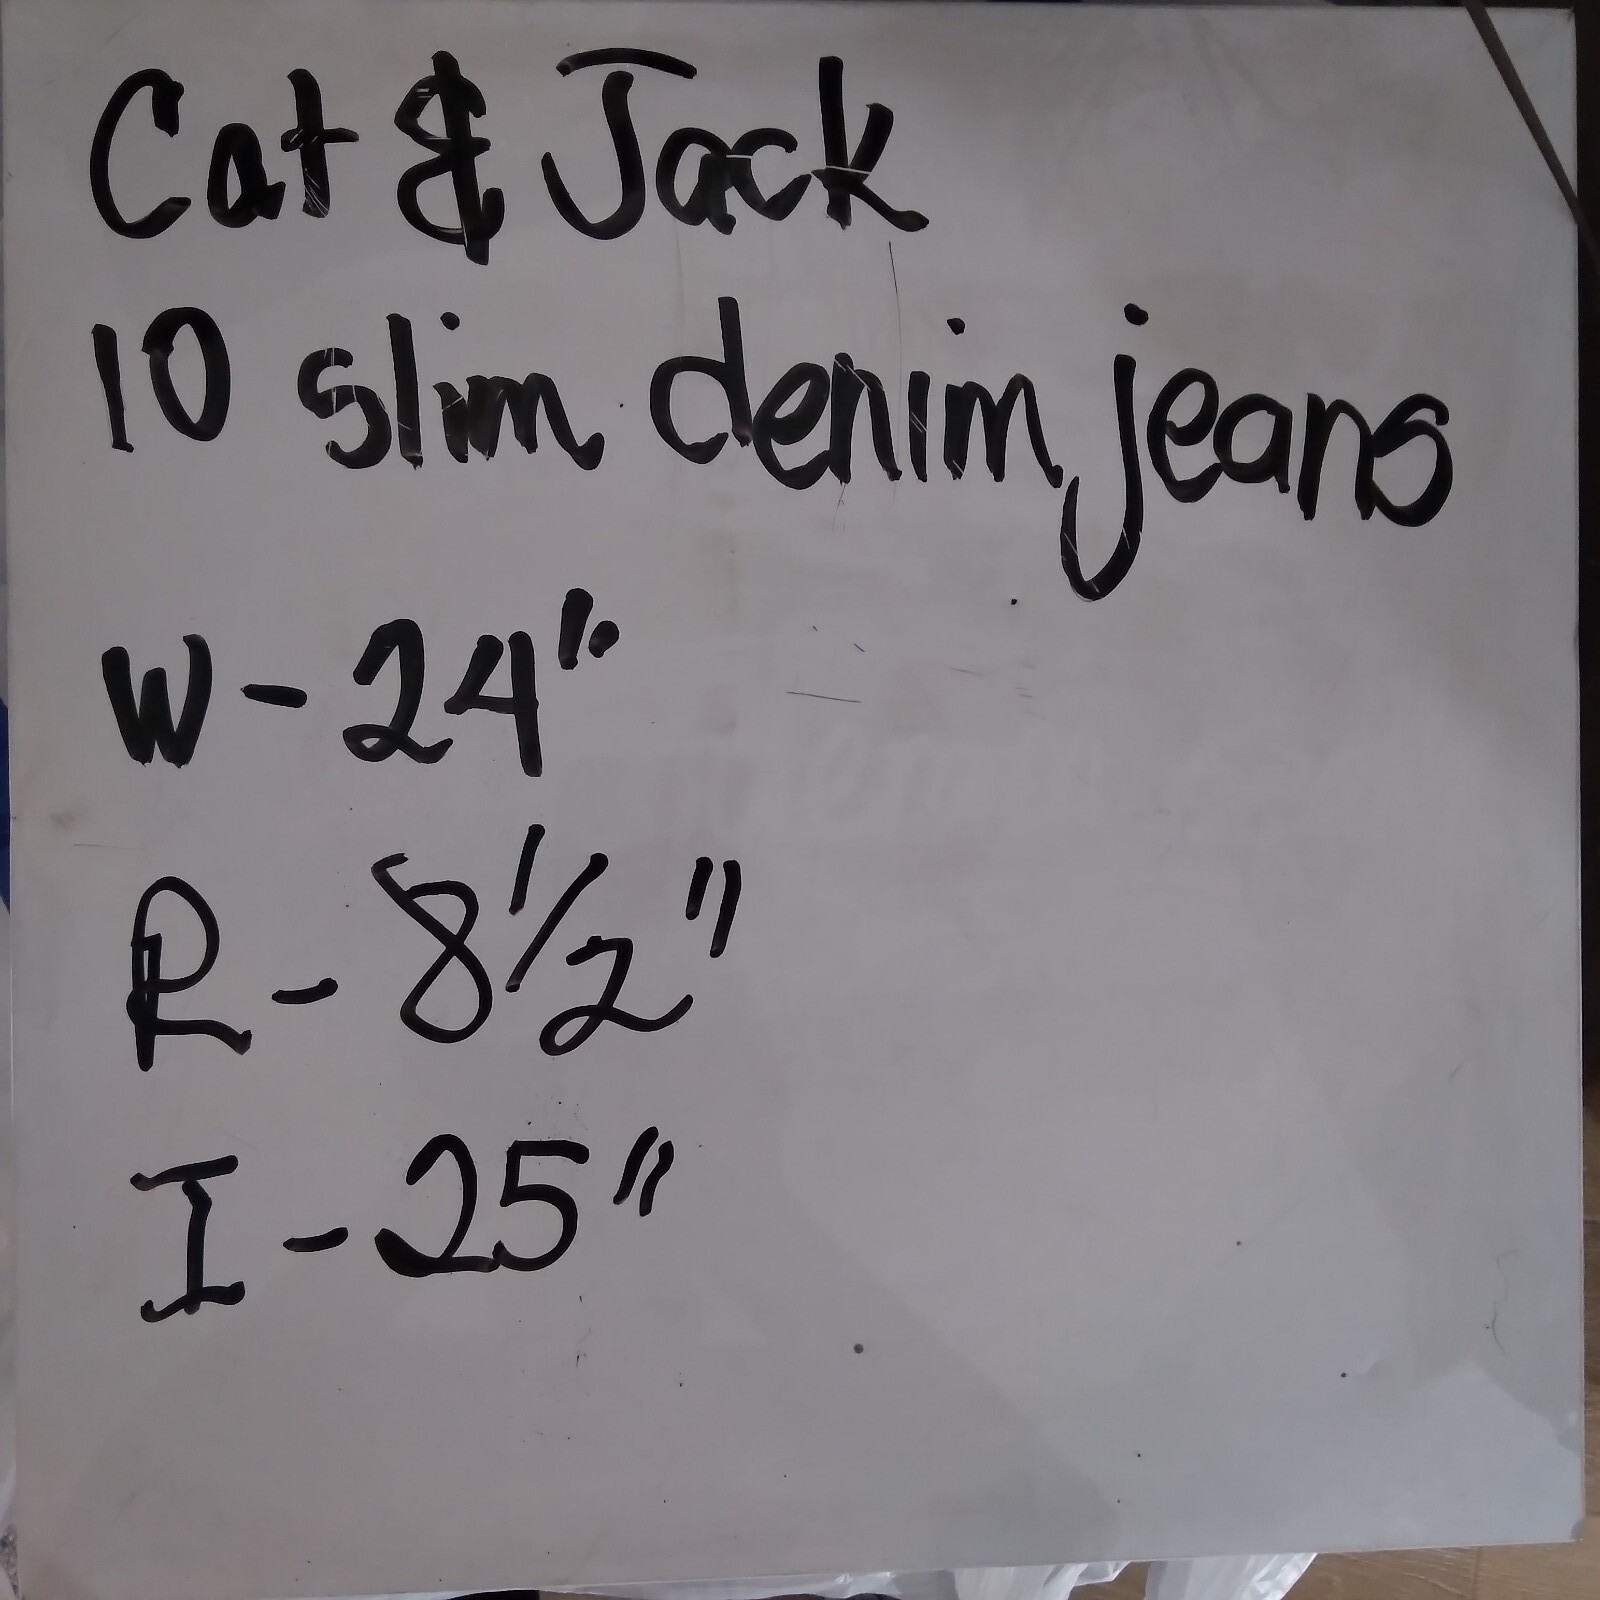 Cat & Jack
10 slim denim jeans
W - 24"
R - 8 1/2"
I - 25"